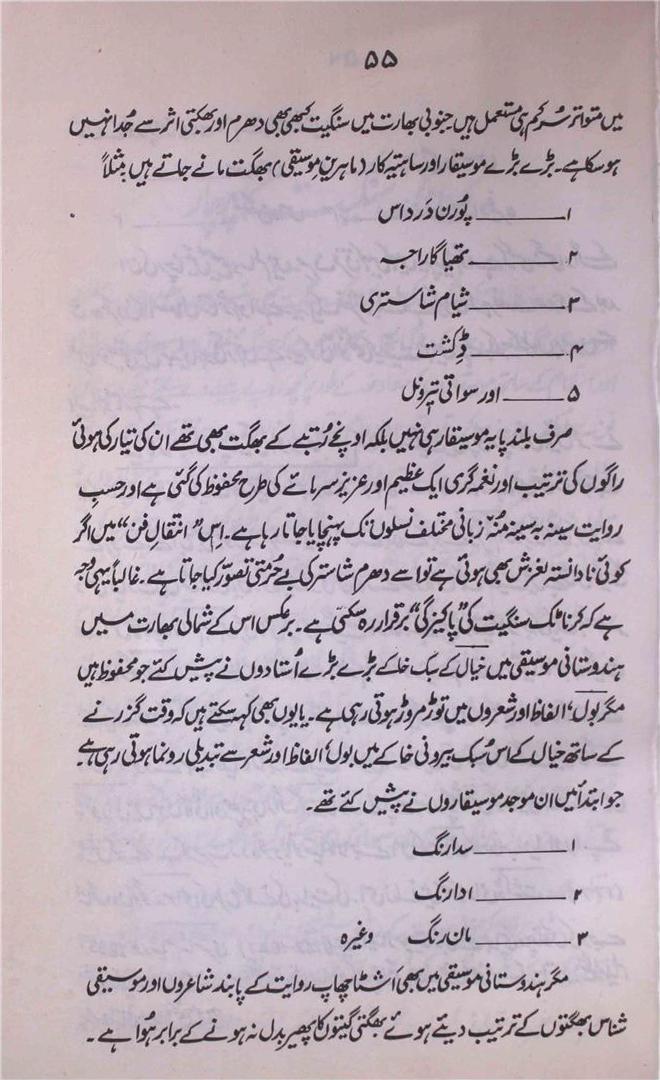 ۵۵
میں متواتر سُر کم ہی مستعمل ہیں جنوبی بھارت میں سنگیت کبھی بھی دھرم اور بھکتی اثر سے جُدا نہیں
ہو سکا ہے۔ بڑے بڑے موسیقار اور ساہتیہ کار (ماہرینِ موسیقی) بھگت مانے جاتے ہیں مثلاً
۱ــــــــ پُورن دَر داس
۲ــــــــ تھیاگا راجہ
۳ــــــــ شیام شاستری
۴ــــــــ ڈِکشت
۵ــــــــ اور سواتی تِیرونل
صرف بلند پایہ موسیقار ہی نہیں بلکہ اونچے رُتبے کے بھگت بھی تھے ان کی تیار کی ہوئی
راگوں کی ترتیب اور نغمہ گری ایک عظیم اور عزیز سرمائے کی طرح محفوظ کی گئی ہے اور حسبِ
روایت سینہ بہ سینہ مُنہ زبانی مختلف نسلوں تک پہنچایا جاتا رہا ہے۔ اِس ”انتقالِ فن“ میں اگر
کوئی نادانستہ لغزش بھی ہوئی ہے تو اسے دھرم شاستر کی بے حُرمتی تصوّر کیا جاتا ہے۔ غالباً یہی وجہ
ہے کہ کرناٹک سنگیت کی ”پاکیزگی“ برقرار رہ سکی ہے۔ برعکس اس کے شمالی بھارت میں
ہندوستانی موسیقی میں خیال کے سبک خاکے بڑے بڑے اُستادوں نے پیش کئے جو محفوظ ہیں
مگر بول، الفاظ اور شعروں میں توڑ مروڑ ہوتی رہی ہے۔ یا یوں بھی کہہ سکتے ہیں کہ وقت گزرنے
کے ساتھ خیال کے اس سُبک بیرونی خاکے میں بول، الفاظ اور شعر سے تبدیلی رونما ہوتی رہی ہے
جو ابتدأ میں ان موجد موسیقاروں نے پیش کئے تھے۔
۱ــــــــ سدارنگ
۲ــــــــ ادارنگ
۳ــــــــ مان رنگ وغیرہ
مگر ہندوستانی موسیقی میں بھی اَشٹا چھاپ روایت کے پابند شاعروں اور موسیقی
شناس بھگتوں کے ترتیب دیئے ہوئے بھگتی گیتوں کا پھیر بدل نہ ہونے کے برابر ہُوا ہے۔